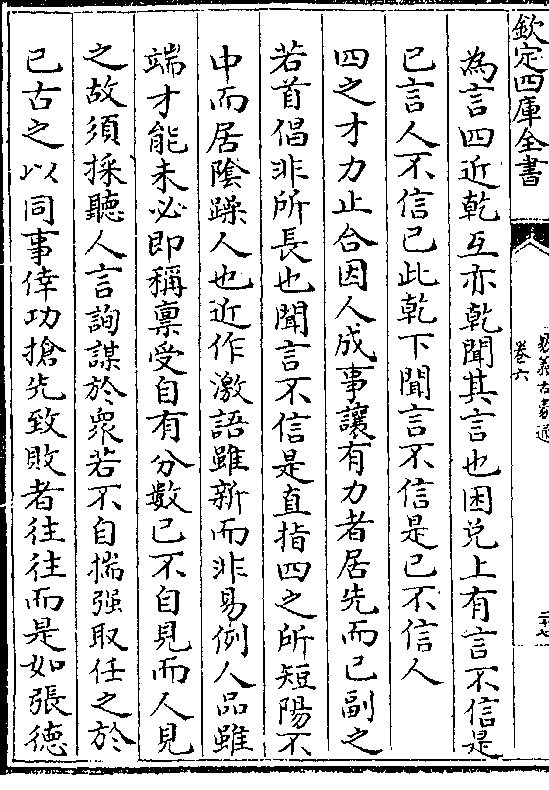 欽定四庫全書
卷六
為言四近乾互亦乾聞其言也困兑上有言不信是
已言人不信已此乾下聞言不信是已不信人
四之才力止合因人成事讓有力者居先而已副之
若首倡非所長也聞言不信是直指四之所短陽不
中而居陰躁人也近作激語雖新而非易例人品雖
端才能未必即稱禀受自有分數已不自見而人見
之故須採聽人言詢謀於衆若不自揣强取任之於
已古之以同事倖功搶先致敗者往往而是如張德